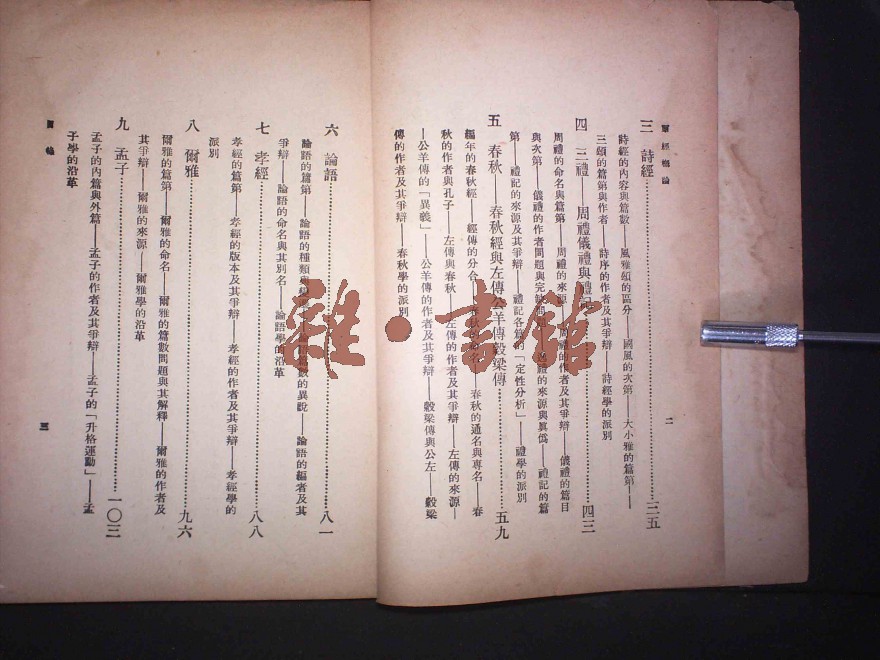 羣經概論
二
三 詩經……三五
詩經的內容與篇數——風雅頌的區分——國風的次第——大小雅的篇第——
三頌的篇第與作者——詩序的作者及其爭辯——詩經學的派別
四 三禮——周禮儀禮與禮記……四三
周禮的命名與篇第——周禮的來源——周禮的作者及其爭辯——儀禮的篇目
與次第——儀禮的作者問題與完缺問題——禮記的來源與眞僞——禮記的篇
第——禮記的來源及其爭辯——禮記各篇的「定性分析」——禮學的派別
五 春秋——春秋經與左傳公羊傳穀梁傳……五九
編年的春秋經——經傳的分合——春秋的命名——春秋的通名與專名——春
秋的作者與孔子——左傳與春秋——左傳的作者及其爭辯——左傳的來源—
—公羊傳的「異義」——公羊傳的作者及其爭辯——穀梁傳與公左——穀梁
傳的作者及其爭辯——春秋學的派別
六 論語……八一
論語的篇第——論語的種類——論語篇數的異說——論語的編者及其
爭辯——論語的命名與其別名——論語學的沿革
七 孝經……八八
孝經的篇第——孝經的版本及其爭辯——孝經的作者及其爭辯——孝經學的
派別
八 爾雅……九六
爾雅的篇第——爾雅的命名——爾雅的篇數問題與其解釋——爾雅的作者及
其爭辯——爾雅的來源——爾雅學的沿革
九 孟子……一〇三
孟子的內篇與外篇——孟子的作者及其爭辯——孟子的「升格運動」——孟
子學的沿革
三
雜·書館